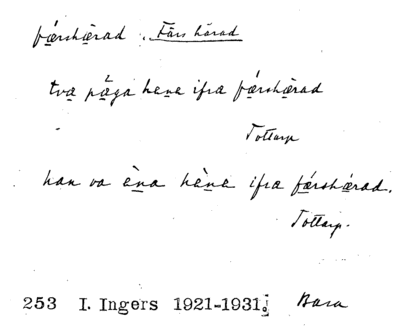 fǽrshæ̀rad . Färs härad
två̱ på̱ga hæ̱næ ifra fǽrshæ̀rad
Tottarp
han va è̱na hæ̱̀næ ifra fǽrshæ̀rad.
Tottarp.
253 I. Ingers 1921-1931. Bara